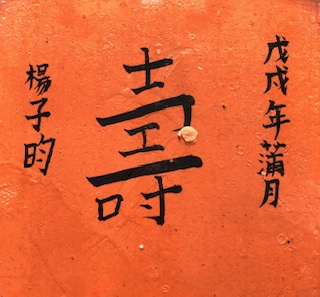 戊戌年蒲月
壽
楊子昀